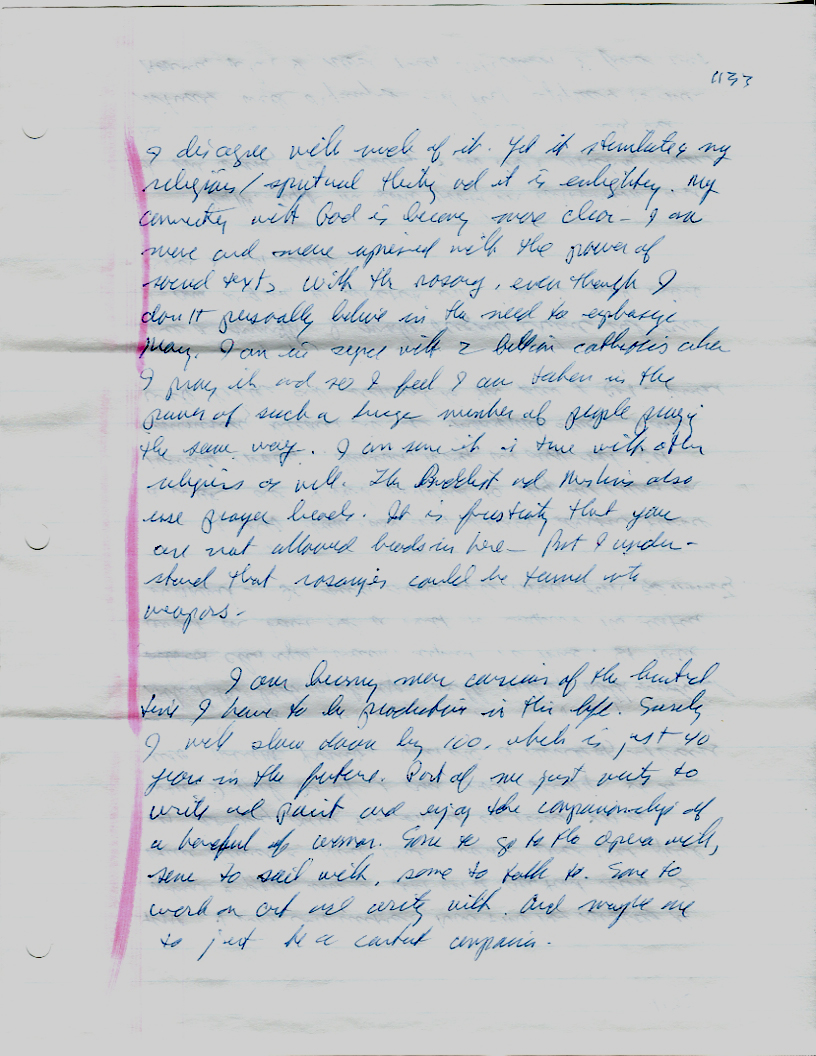 1133
I disagree with much of it. Yet it stimulates my
religious/spiritual and it is My
with God is more clear - I am
more and more with the power of
texts with the rosary, even though I
don't personally believe in the need to
Mary. I am in with 2 billion catholics when
I pray it and so I feel I am taken in the
power of such a huge number of people
the same way. I am sure it is true with other
religions as well. The Buddhist and Muslims also
use prayer beads. It is that you
are not allowed beads in here - But I under-
stand that rosaries could be turned into
weapons -
I am more of the
time I have to be in this life. Surely
I will slow down by 100, which is just 40
years in the future. Part of me just wants to
write and paint and enjoy the companionship of
a of women. Some to go to the opera with,
some to sail with, some to talk to. Some to
work on art and with. And maybe one
to just be a companion.